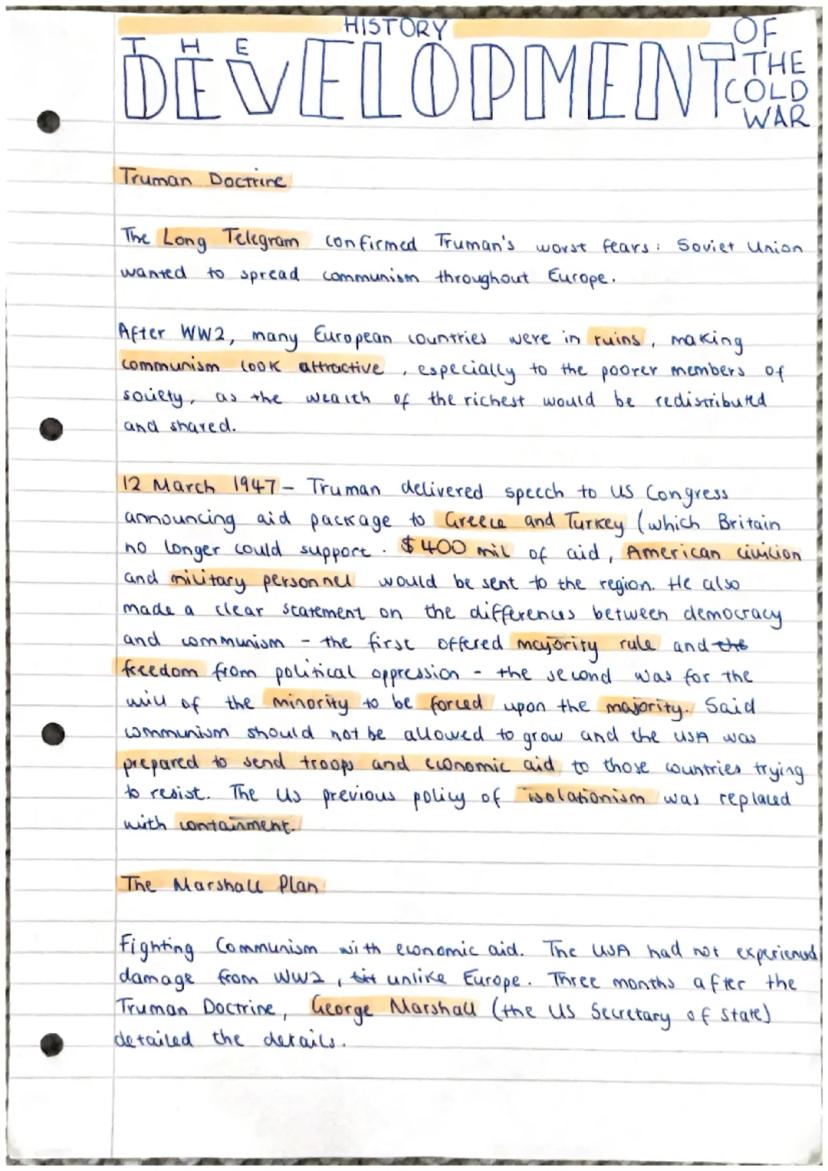 HISTORY
THE DEVELOPMENT OF THE COLD WAR
Truman Doctrine
The Long Telegram confirmed Truman's worst fears: Soviet Union
wanted to spread communism throughout Europe.
After WW2, many European countries were in ruins, making
communism look attractive, especially to the poorer members of
society, as the wealth of the richest would be redistributed
and shared.
12 March 1947 - Truman delivered speech to US Congress
announcing aid package to Greece and Turkey (which Britain
no longer could support. $400 mil of aid, American civilian
and military personnel would be sent to the region. He also
made a clear statement on the differences between democracy
and communism - the first offered majority rule and the
freedom from political oppression - the second was for the
will of the minority to be forced upon the majority. Said
communism should not be allowed to grow and the USA was
prepared to send troops and economic aid to those countries trying
to resist. The US previous policy of isolationism was replaced
with containment.
The Marshall Plan
Fighting Communism with economic aid. The USA had not experienced
damage from WW2, unlike Europe. Three months after the
Truman Doctrine, George Marshall (the US Secretary of State)
detailed the details.